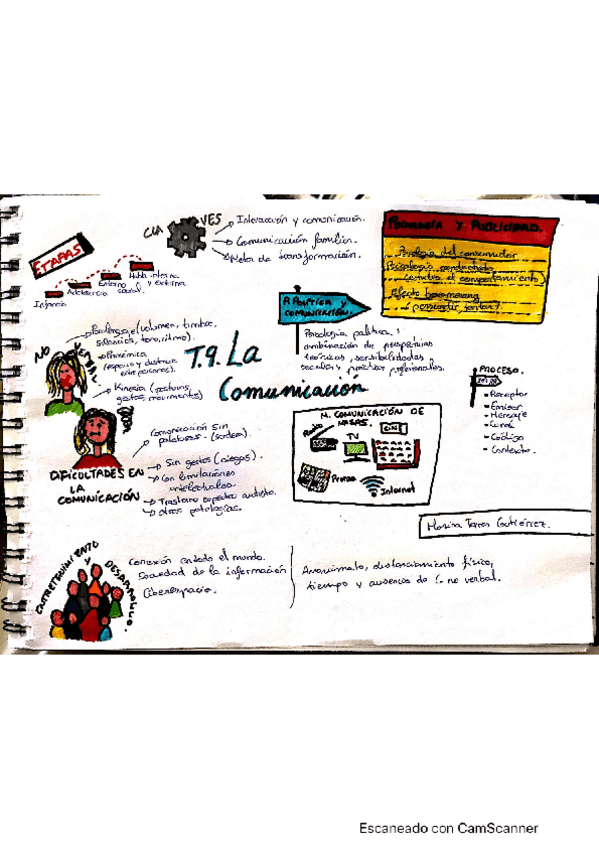 T.9. La
Comunicación
ETAPAS
Infancia
Adolescencia
Entorno
social
Habla interna
y externa
CLAVES
Interacción y comunicación.
Comunicación familiar.
Meta de transformación.
PSICOLOGÍA Y PUBLICIDAD.
Psicología del consumidor
Psicología
(conduc. el comportamiento)
Efecto boomerang
persuadir
P. POLÍTICA Y
COMUNICACIÓN.
Psicología política:
combinación de perspectivas
teóricas, sensibilidades
sociales y prácticas profesionales.
NO VERBAL
Paralenguaje (volumen, timbre,
silencios, tono, ritmo).
Proxémica
(espacio y distancia
entre personas).
Kinesia (posturas,
gestos, movimientos)
PROCESO.
- Receptor
- Emisor
- Mensaje
- Canal
- Código
- Contexto.
M. COMUNICACIÓN DE
MASAS.
Radio
TV
CINE
Prensa
Internet
DIFICULTADES EN
LA
COMUNICACIÓN
Comunicación sin
palabras. (sordera).
Sin gestos (ciegos).
Con limitaciones
intelectuales.
Trastorno espectro autista.
otras patologías.
Marina Torres Gutiérrez.
ENTRETENIMIENTO
Y
DESARROLLO.
Conexión en todo el mundo.
Sociedad de la información
Ciberespacio.
Anonimato, distanciamiento físico,
tiempo y ausencia de C. no verbal.
Escaneado con CamScanner